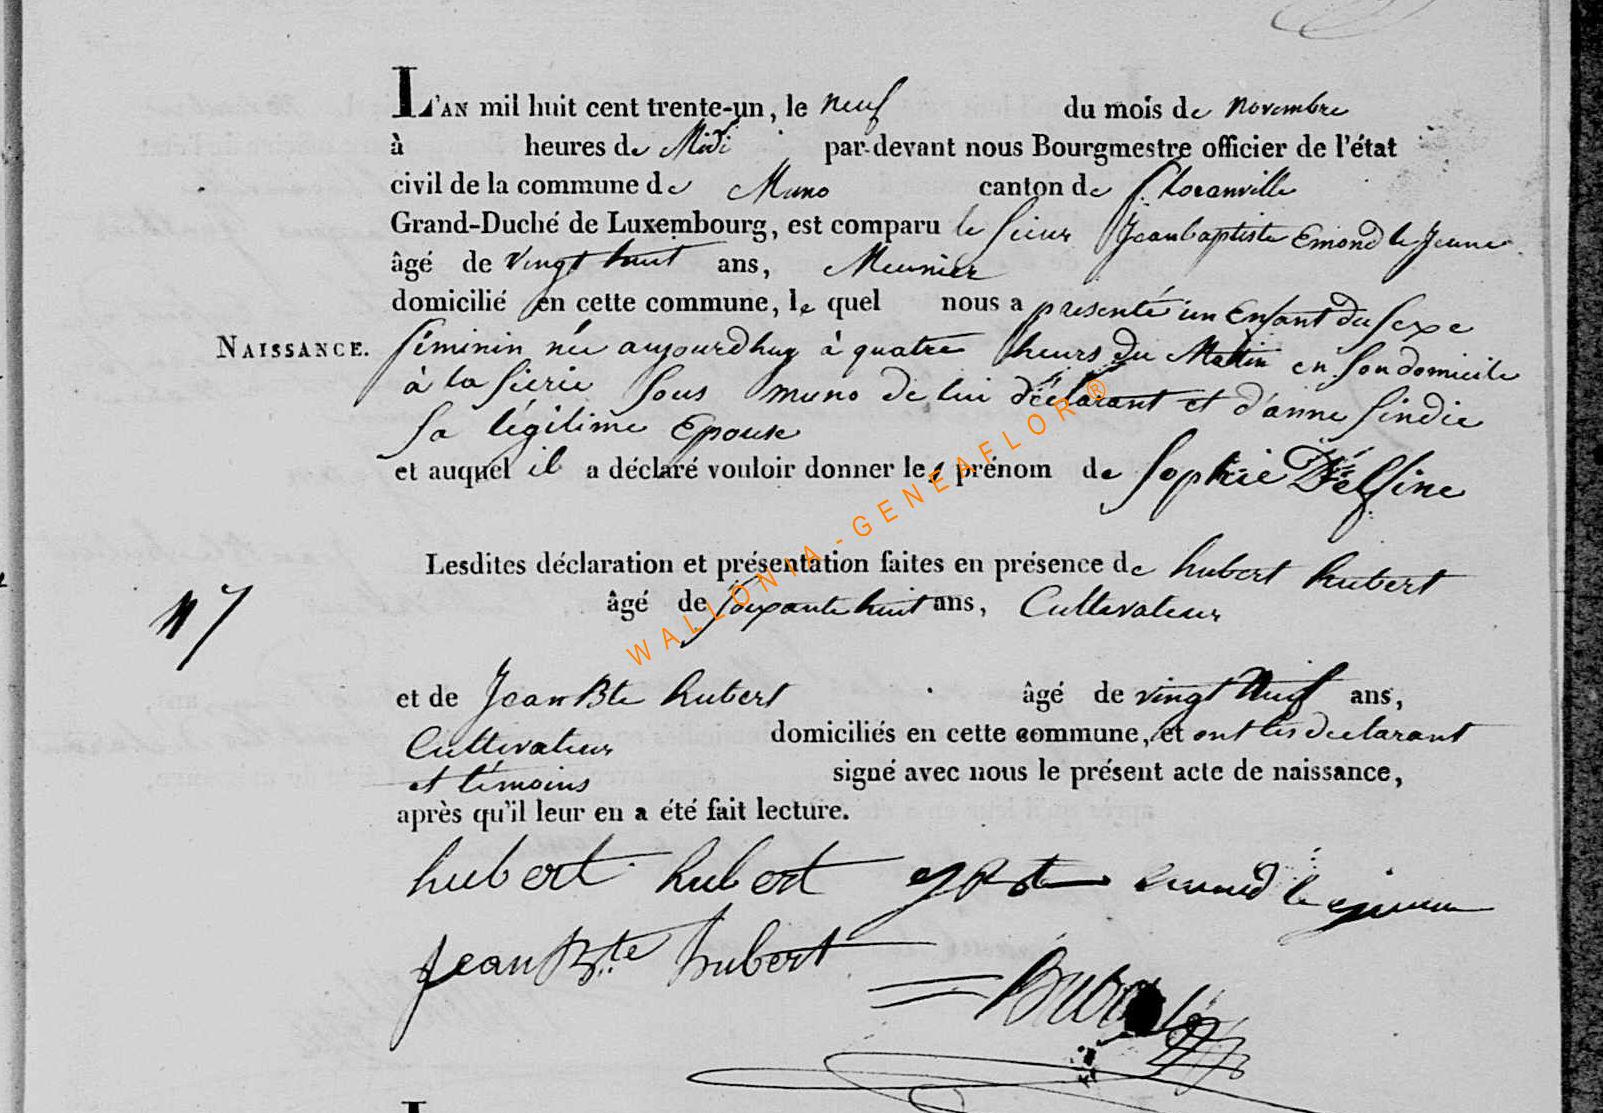 L'AN mil huit cent trente-un, le neuf du mois de novembre
à heures de Midi par-devant nous Bourgmestre officier de l'état
civil de la commune de Muno canton de floranville
Grand-Duché de Luxembourg, est comparu le sieur Jeanbaptiste Emond le Jeune
âgé de vingt huit ans, Meunier
domicilié en cette commune, le quel nous a presenté un Enfant du sexe
NAISSANCE. féminin née aujourdhuy à quatre heurs du Mattin en son domicile
à la sierie sous muno de lui déclarant et d'anne sindic
sa légitime Epouse
et auquel il a déclaré vouloir donner les prénom de Sophie Delfine
Lesdites déclaration et présentation faites en présence de hubert hubert
N 7 âgé de soixante huit ans, Cultivateur
et de Jean Bte hubert âgé de vingt neuf ans,
Cultivateur domiciliés en cette commune, et ont les declarant
et témoins signé avec nous le présent acte de naissance,
après qu'il leur en a été fait lecture.
hubert hubert J Bt emond le jeune
Jean Bte hubert
WALLONIA-GENEAFLOR®